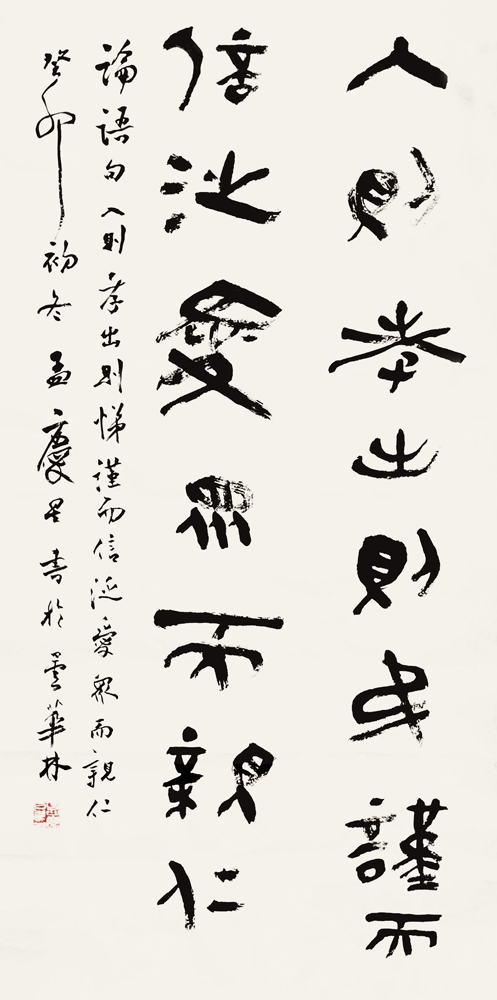 入則孝出則弟謹而
信泛愛眾而親仁
論語句入則孝出則悌謹而信泛愛眾而親仁
癸卯初冬孟慶星書於華林